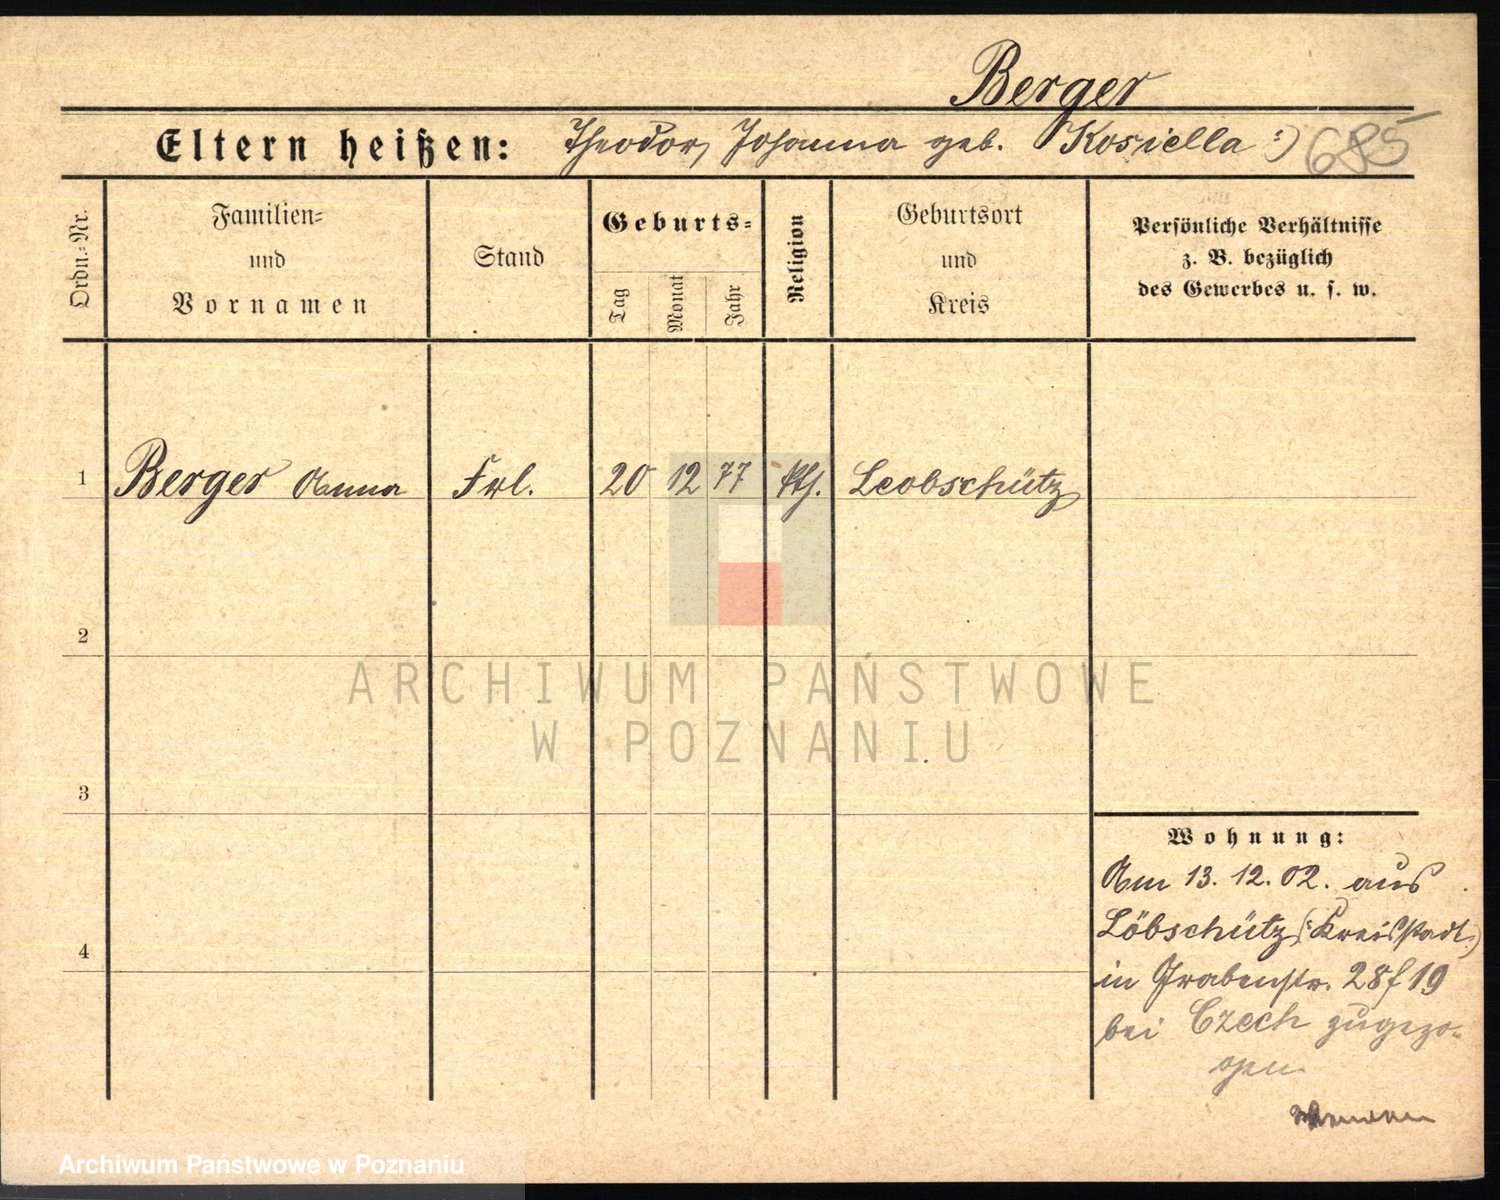 Berger
Eltern heißen: Theodor, Johanna geb. Kosiella :) 685
Ordn.-Nr.
Familien-
und
Vornamen
Stand
Geburts-
Tag
Monat
Jahr
Religion
Geburtsort
und
Kreis
Persönliche Verhältnisse
z. B. bezüglich
des Gewerbes u. s. w.
1 Berger Anna Frl. 20 12 77 kth. Leobschütz
2
ARCHIWUM PAŃSTWOWE
W POZNANIU
3
Wohnung:
Am 13. 12. 02. aus
Löbschütz (: Kreisstadt :)
4
in Grabenstr. 28 f 19
bei Czech zugezo-
gen
Archiwum Państwowe w Poznaniu